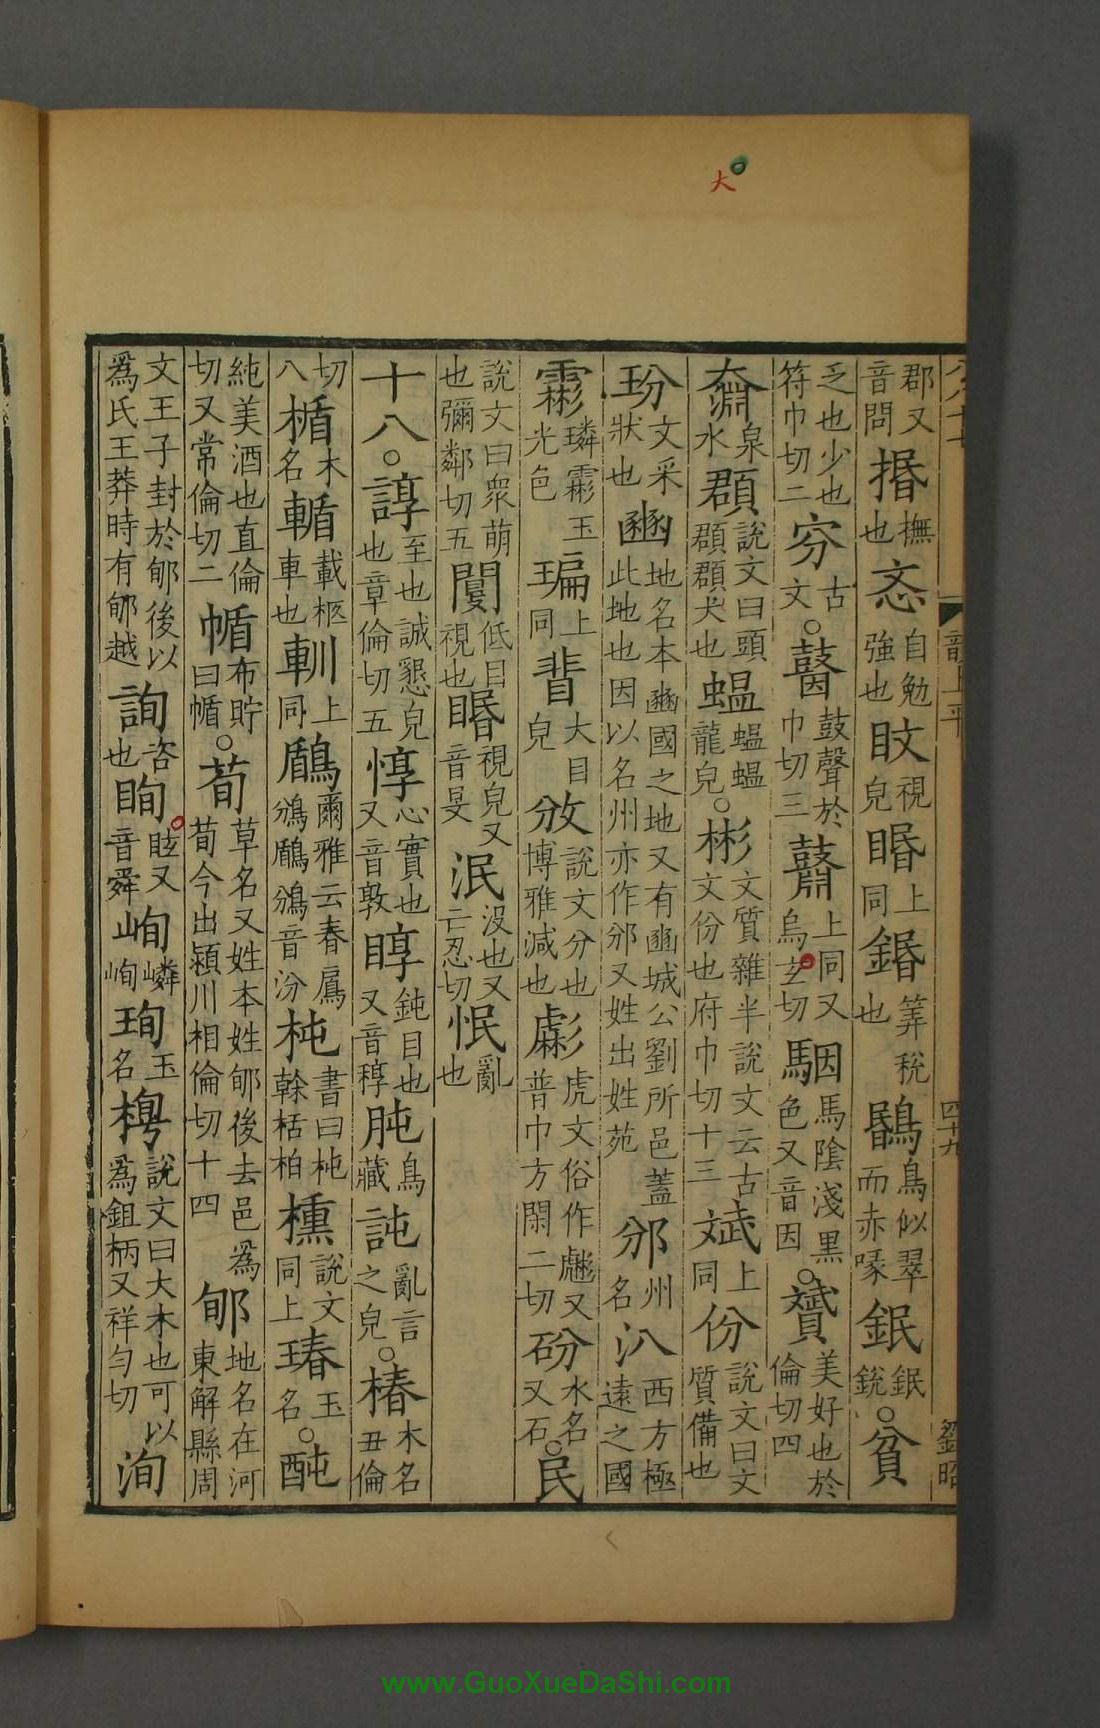 大
郡又音問捪撫也忞自勉強也旼視皃睧上同鍲筭稅也鶥鳥似翠而赤喙鈱鈱銳○貧
乏也少也符巾切二穷古文○鼘鼓聲於巾切三鼝上同又烏玄切駰馬陰淺黑色又音因○贇美好也於倫切四
奫泉水頵說文曰頭頵頵大也蝹蝹蝹龍皃○彬文質雜半說文云古文份也府巾切十三斌上同份說文曰文質備也
玢文采狀也豳地名本豳國之地又有豳城公劉所邑蓋此地也因以名州亦作邠又姓出姓苑邠州名汃西方極遠之國
霦璘霦玉光色㻞上同大目皃攽說文分也博雅減也虨虎文俗作彪又普巾方閑二切砏水名又石○民
說文曰衆萌也彌鄰切五䦥低目視也㖧視皃又音旻泯沒也又亡忍切怋亂也
十八○諄至也誠懇皃也章倫切五惇心實也又音敦㬿鈍目也又音稕肫鳥藏訰亂言之皃○椿木名丑倫
切八楯木名輴載柩車也䡅上同鶞爾雅云春鳸鳻鶞鳻音汾杶書曰杶榦栝柏櫄說文同上瑃玉名○䣩
純美酒也直倫切又常倫切二㡒布貯曰㡒○荀草名又姓本姓郇後去邑爲荀今出潁川相倫切十四郇地名在河東解縣周
文王子封於郇後以爲氏王莽時有郇越詢咨也眴眩又音舜峋嶙峋珣玉名㯗說文曰大木也可以爲鉏柄又祥勻切洵
韻上平
四十九
劉昭
www.GuoXueDaShi.com